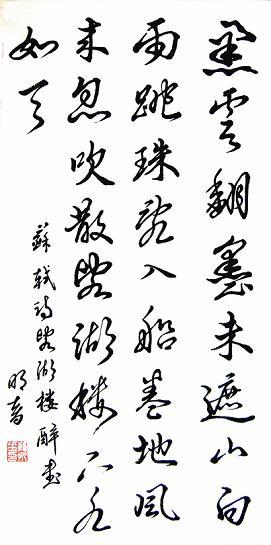 黑雲翻墨未遮山白
雨跳珠乱入船卷地風
来忽吹散望湖楼下水
如天
蘇軾詩望湖楼醉書
明